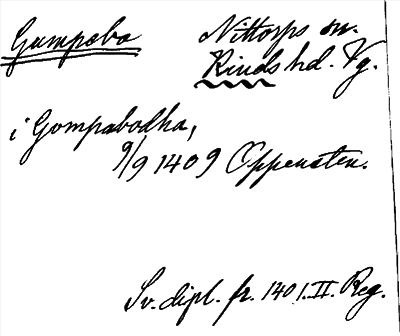 Gumpebo
Nittorps sn.
Kinds hd. Vg.
i Gompabodha,
9/9 1409 Oppensten.
Sv. dipl. fr. 1401. II. Reg.